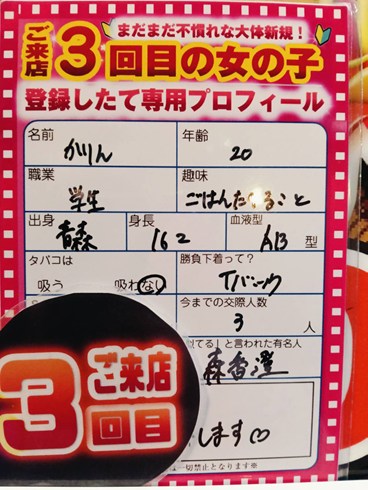 まだまだ不慣れな大体新規！
ご来店3回目の女の子
登録したて専用プロフィール
名前 かりん
年齢 20
職業 学生
趣味 ごはんたべること
出身 青森
身長 162
血液型 AB 型
タバコは 吸う 吸わない
勝負下着って？ Tバック
今までの交際人数 3 人
似てる」と言われた有名人
森香澄
ご来店
3回目
します♡
一切禁止となります※